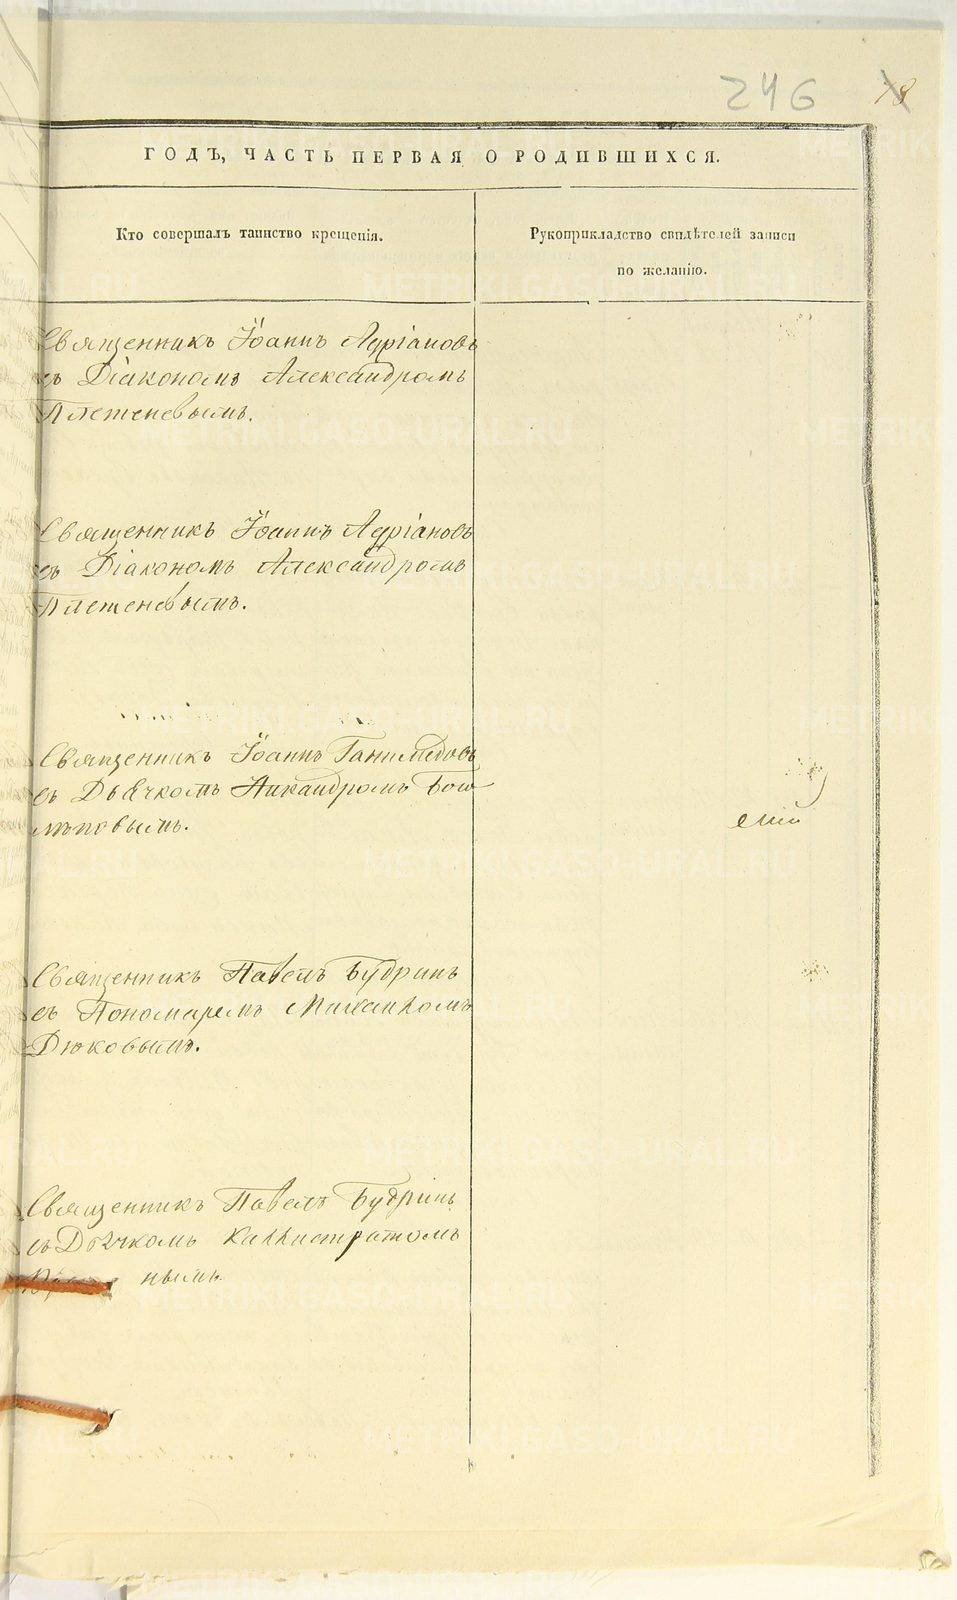 246 78
ГОДЪ, ЧАСТЬ ПЕРВАЯ О РОДИВШИХСЯ.
Кто совершалъ таинство крещенія.
Рукоприкладство свидѣтелей записи
по желанію.
Священникъ Іоаннъ Адріановъ
съ Діакономъ Александромъ
Плетеневымъ.
Священникъ Іоаннъ Адріановъ
съ Діакономъ Александромъ
Плетеневымъ.
Священникъ Іоаннъ Ганимедовъ
съ Дьячкомъ Никандромъ
Священникъ Павелъ Будринъ
съ Пономаремъ
Дюковымъ.
Священникъ Павелъ Будринъ
съ Дьячкомъ Каллистратомъ
нымъ
METRIKI.GASO-URAL.RU